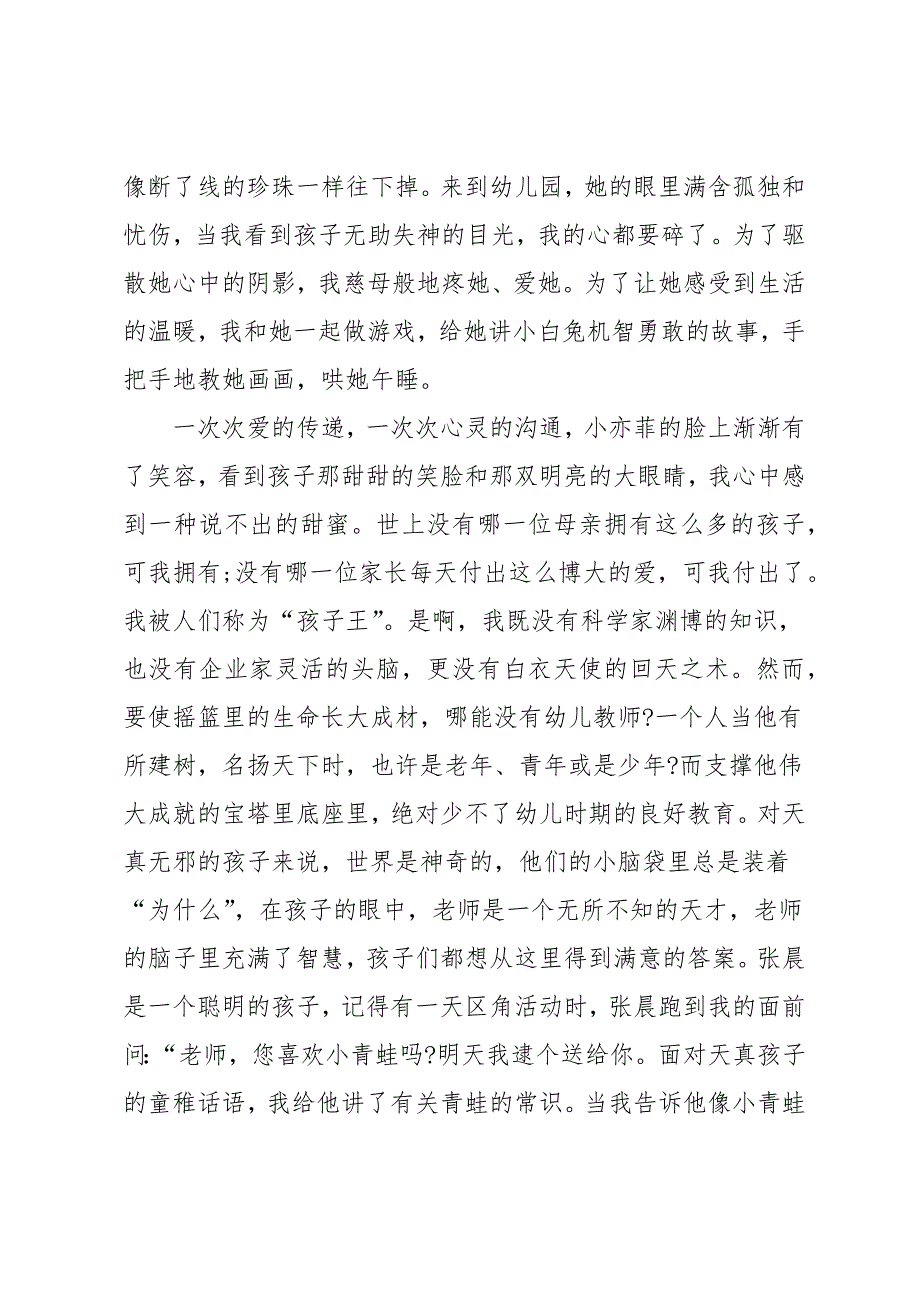 像断了线的珍珠一样往下掉。来到幼儿园，她的眼里满含孤独和
忧伤，当我看到孩子无助失神的目光，我的心都要碎了。为了驱
散她心中的阴影，我慈母般地疼她、爱她。为了让她感受到生活
的温暖，我和她一起做游戏，给她讲小白兔机智勇敢的故事，手
把手地教她画画，哄她午睡。
一次次爱的传递，一次次心灵的沟通，小亦菲的脸上渐渐有
了笑容，看到孩子那甜甜的笑脸和那双明亮的大眼睛，我心中感
到一种说不出的甜蜜。世上没有哪一位母亲拥有这么多的孩子，
可我拥有;没有哪一位家长每天付出这么博大的爱，可我付出了。
我被人们称为“孩子王”。是啊，我既没有科学家渊博的知识，
也没有企业家灵活的头脑，更没有白衣天使的回天之术。然而，
要使摇篮里的生命长大成材，哪能没有幼儿教师?一个人当他有
所建树，名扬天下时，也许是老年、青年或是少年?而支撑他伟
大成就的宝塔里底座里，绝对少不了幼儿时期的良好教育。对天
真无邪的孩子来说，世界是神奇的，他们的小脑袋里总是装着
“为什么”，在孩子的眼中，老师是一个无所不知的天才，老师
的脑子里充满了智慧，孩子们都想从这里得到满意的答案。张晨
是一个聪明的孩子，记得有一天区角活动时，张晨跑到我的面前
问：“老师，您喜欢小青蛙吗?明天我逮个送给你。面对天真孩子
的童稚话语，我给他讲了有关青蛙的常识。当我告诉他像小青蛙